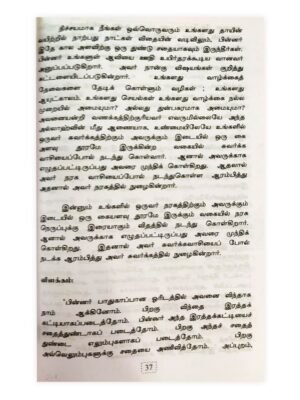 நிச்சயமாக நீங்கள் ஒவ்வொருவரும் உங்களது தாயின்
வயிற்றில் நாற்பது நாட்கள் விதையின் வடிவிலும், பின்னர்
இதே கால அளவிற்கு ஒரு துண்டு சதையாகவும் இருந்தீர்கள்.
பின்னர் உங்களுள் ஆவியை ஊதி உயிர்தரக்கூடிய வானவர்
அனுப்பப்படுகிறார். அவர் நான்கு விஷயங்கள் குறித்து
கட்டளையிடப்படுகின்றார். உங்களது வாழ்க்கைத்
தேவைகளை தேடிக் கொள்ளும் வழிகள் ; உங்களது
ஆயுட்காலம். உங்களது செயல்கள் உங்களது வாழ்க்கை நல்ல
முறையில் அமையுமா? அல்லது துன்பகரமாக அமையுமா?
அவனையன்றி வணக்கத்திற்குரியவர் எவருமில்லையே அந்த
அல்லாஹ்வின் மீது ஆணையாக, உண்மையிலேயே உங்களில்
ஒருவர் சுவர்க்கத்திற்கும் அவருக்கும் இடையில் ஒரு முள
அளவு தூரமே இருக்கின்ற வகையில் சுவர்க்க
வாசியைப்போல் நடந்து கொள்வார். ஆனால் அவருக்காக
எழுதப்பட்டிருப்பது அவரை முந்திக் கொள்கிறது. ஆதலால்
அவர் நரக வாசியைப்போல் நடந்துகொள்ள ஆரம்பித்து
அதனால் அவர் நரகத்தில் நுழைகின்றார்.
இன்னும் உங்களில் ஒருவர் நரகத்திற்கும் அவருக்கும்
இடையில் ஒரு கையளவு தூரமே இருக்கும் வகையில் நரக
நெருப்புக்கு இரையாகும் விதத்தில் நடந்து கொள்கிறார்.
ஆனால் அவருக்காக எழுதப்பட்டிருப்பது அவரை முந்திக்
கொள்கிறது. இதனால் அவர் சுவர்க்கவாசியைப் போல்
நடக்க ஆரம்பித்து அவர் சுவர்க்கத்தில் நுழைகின்றார்.
விளக்கம்:
"பின்னர் பாதுகாப்பான ஓரிடத்தில் அவனை விந்தாக
நாம் ஆக்கினோம். பிறகு விந்தை இரத்தக்
கட்டியாகப்படைத்தோம். பின்னர் அந்த இரத்தக்கட்டியைச்
சதைத்துண்டாகப் படைத்தோம். பிறகு அந்தச் சதைத்
துண்டை எலும்புகளாகப் படைத்தோம். பிறகு
அவ்வெலும்புகளுக்கு சதையை அணிவித்தோம். அப்புறம்,
37